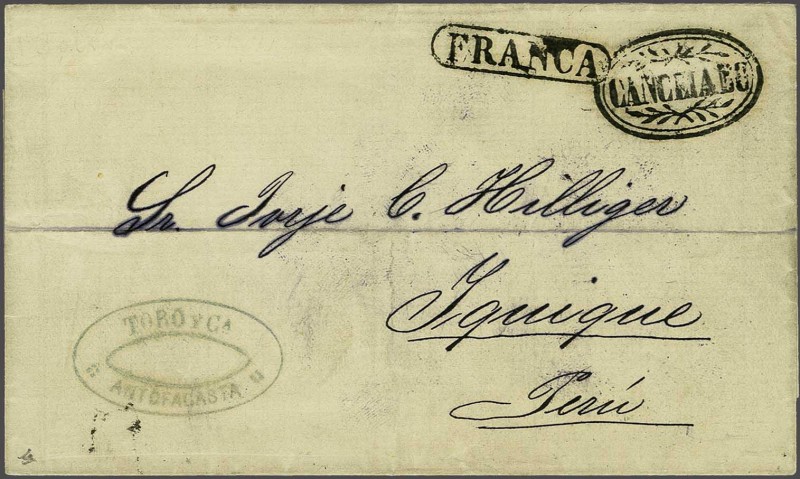 FRANCA
CANCELADO
Sr. Jorje C. Hilliger
Iquique
Perú
TORO Y Ca
ANTOFAGASTA